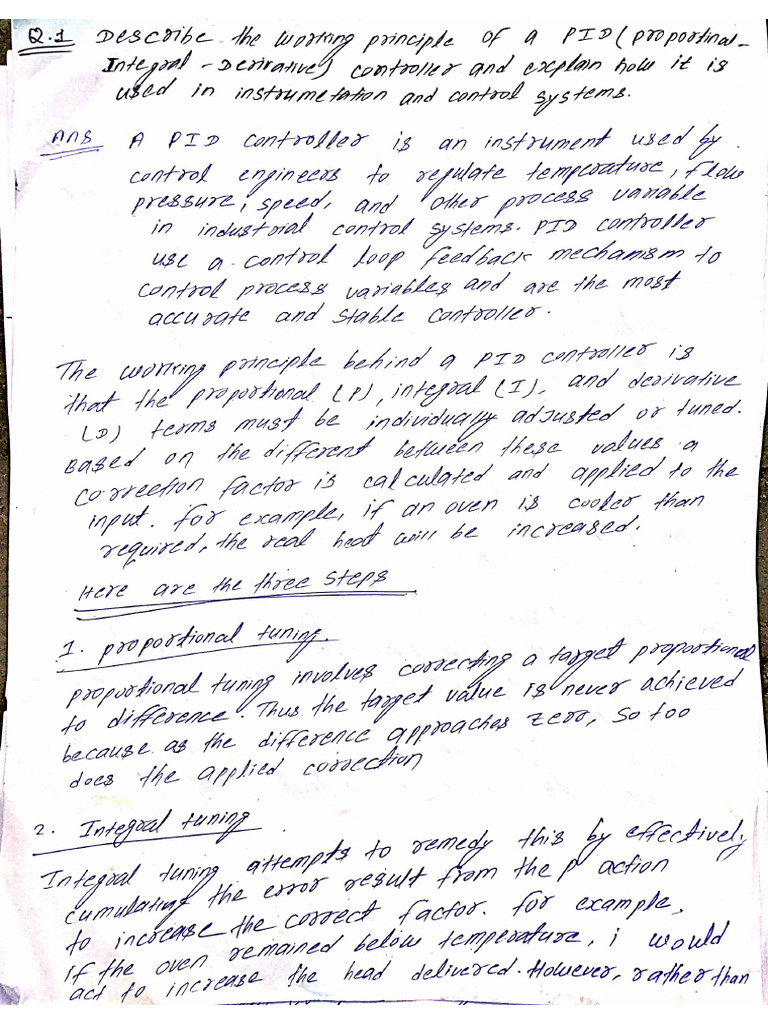 Q.1 Describe the working principle of a PID (proportinal-
Integral-Derivative) controller and explain how it is
used in instrumetation and control systems.
Ans A PID controller is an instrument used by
control engineers to regulate temperature, flow
pressure, speed, and other process variable
in industrial control systems. PID controller
use a control loop feedback mechanism to
control process variables and are the most
accurate and stable controller.
The working principle behind a PID controller is
that the proportional (P), integral (I), and derivative
(D) terms must be individually adjusted or tuned.
Based on the different between these values a
correction factor is calculated and applied to the
input. for example, if an oven is cooler than
required, the real heat will be increased.
Here are the three steps
1. proportional tuning.
proportional tuning involves correcting a target proportional
to difference. Thus the target value is never achieved
because as the difference approaches zero, so too
does the applied correction
2. Integral tuning
Integral tuning attempts to remedy this by effectively
cumulating the error result from the P action
to increase the correct factor. for example,
if the oven remained below temperature, i would
act to increase the head delivered. However, rather than